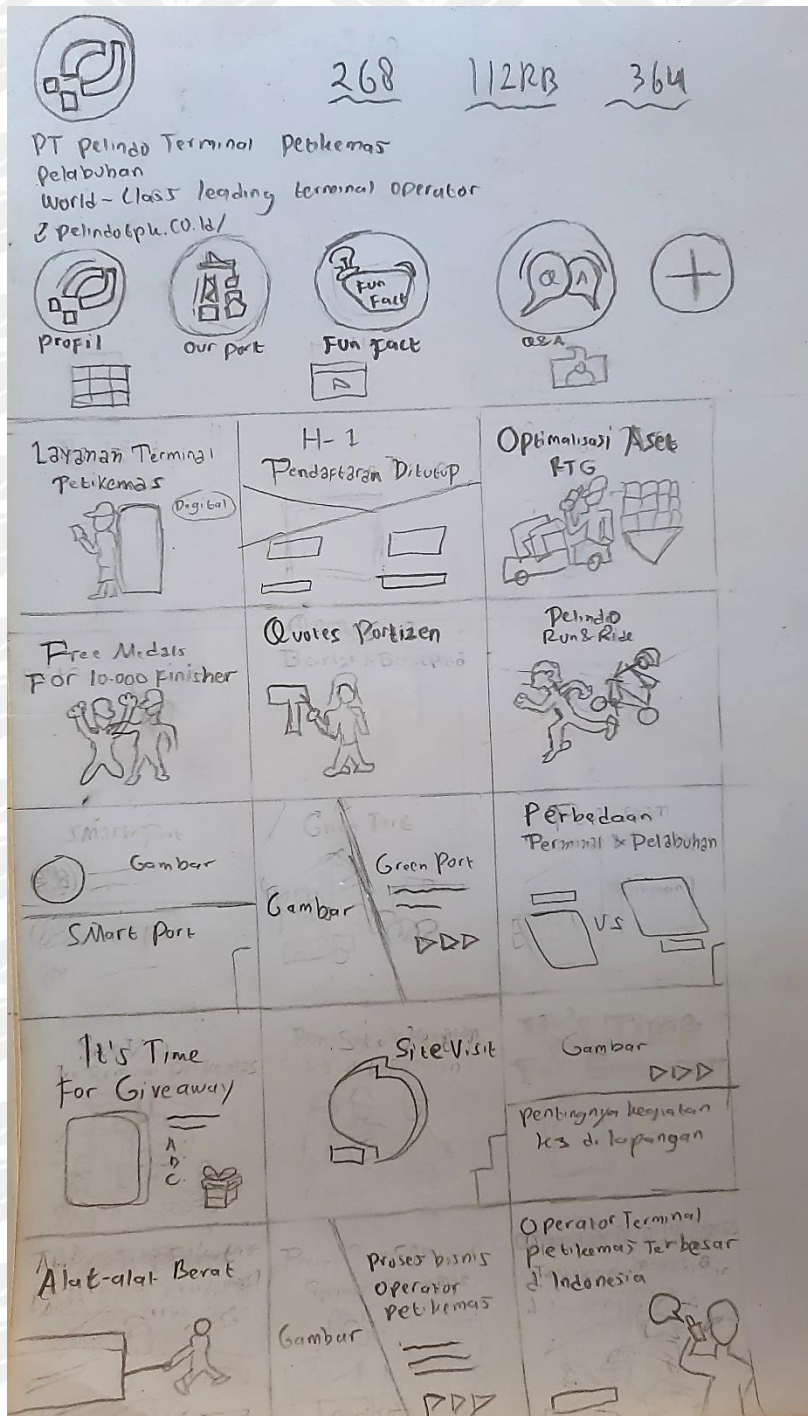 268 112RB 364
PT Pelindo Terminal Petikemas
Pelabuhan
World-Class leading terminal operator
pelindotpk.co.id/
Fun
Fact
Q A
Profil Our port Fun Fact Q&A
Layanan Terminal
Petikemas
Digital
H-1
Pendaftaran Ditutup
Optimalisasi Aset
RTG
Free Medals
For 10.000 Finisher
Quotes Portizen
Pelindo
Run & Ride
Gambar
Smart Port
Gambar
Green Port
Perbedaan
Terminal & Pelabuhan
VS
It's Time
For Giveaway
A
B
C.
Site Visit
Gambar
pentingnya kegiatan
k3 di lapangan
Alat-alat Berat
Gambar
Proses bisnis
operator
petikemas
Operator Terminal
petikemas Terbesar
di Indonesia